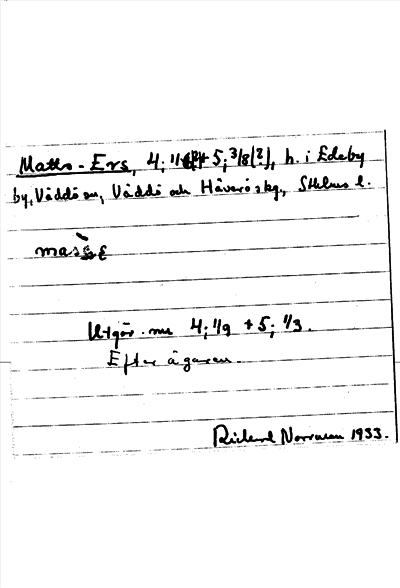 Matts-Ers, 4; 1/6[?]+ 5; 3/8[?], h. i Edeby
by, Väddö sn, Väddö och Häverö skg, Sthlms l.
Utgör nu 4; 1/9 + 5; 1/3.
Efter ägaren.
Richard Norrman 1933.